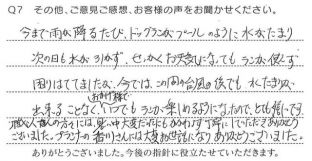 Q7 その他、ご意見ご感想、お客様の声をお聞かせください。
今まで雨が降るたび、ドックランがプールのように水がたまり
次の日も水が引かず、せっかくお天気になってもランが使えず
困りはててましたが、今では、この間の台風の後でも水たまりが
出来ることなく、おかげ様でいつでもランが楽しめるようになったので、とても嬉しいです。
職人様の方々には、暑い中大変だったにもかかわらず丁寧にしていただきありがとう
ございました。プランナーの香川さんには大変お世話になりありがとうございました。
ありがとうございました。今後の指針に役立たせていただきます。